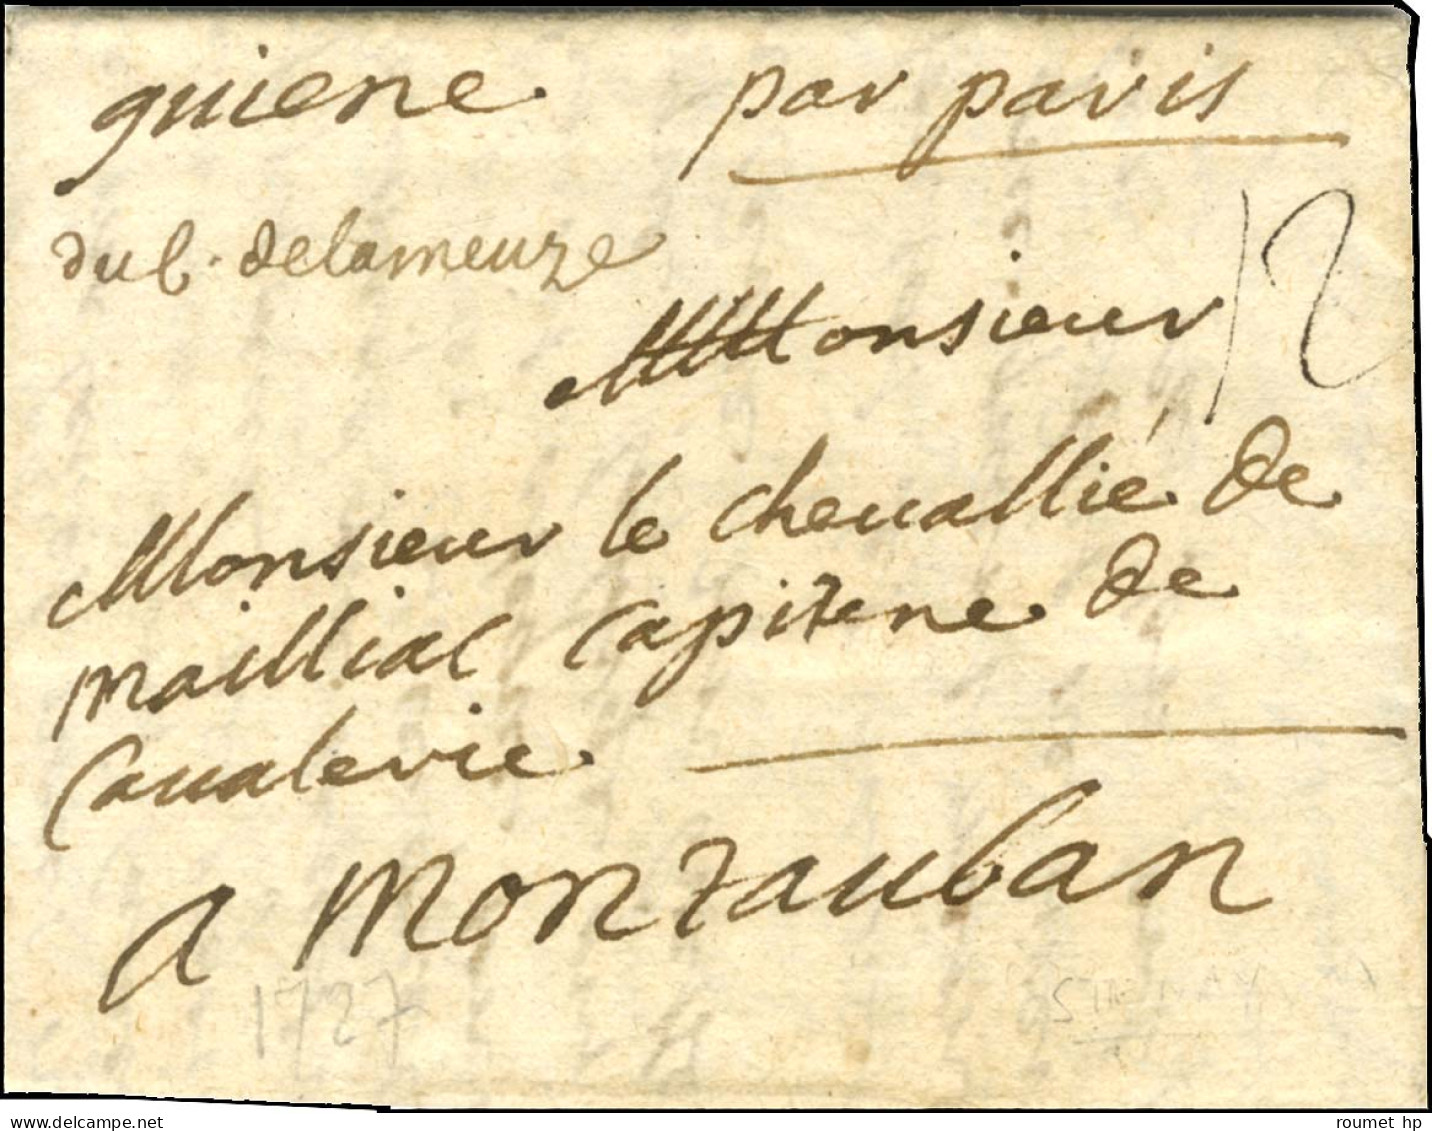 guiene par paris
du b. delameuze
12
Monsieur
Monsieur le cheuallié de
mailliac capitene de
caualerie
a montauban
1727 STENAY
delcampe.net roumet hp